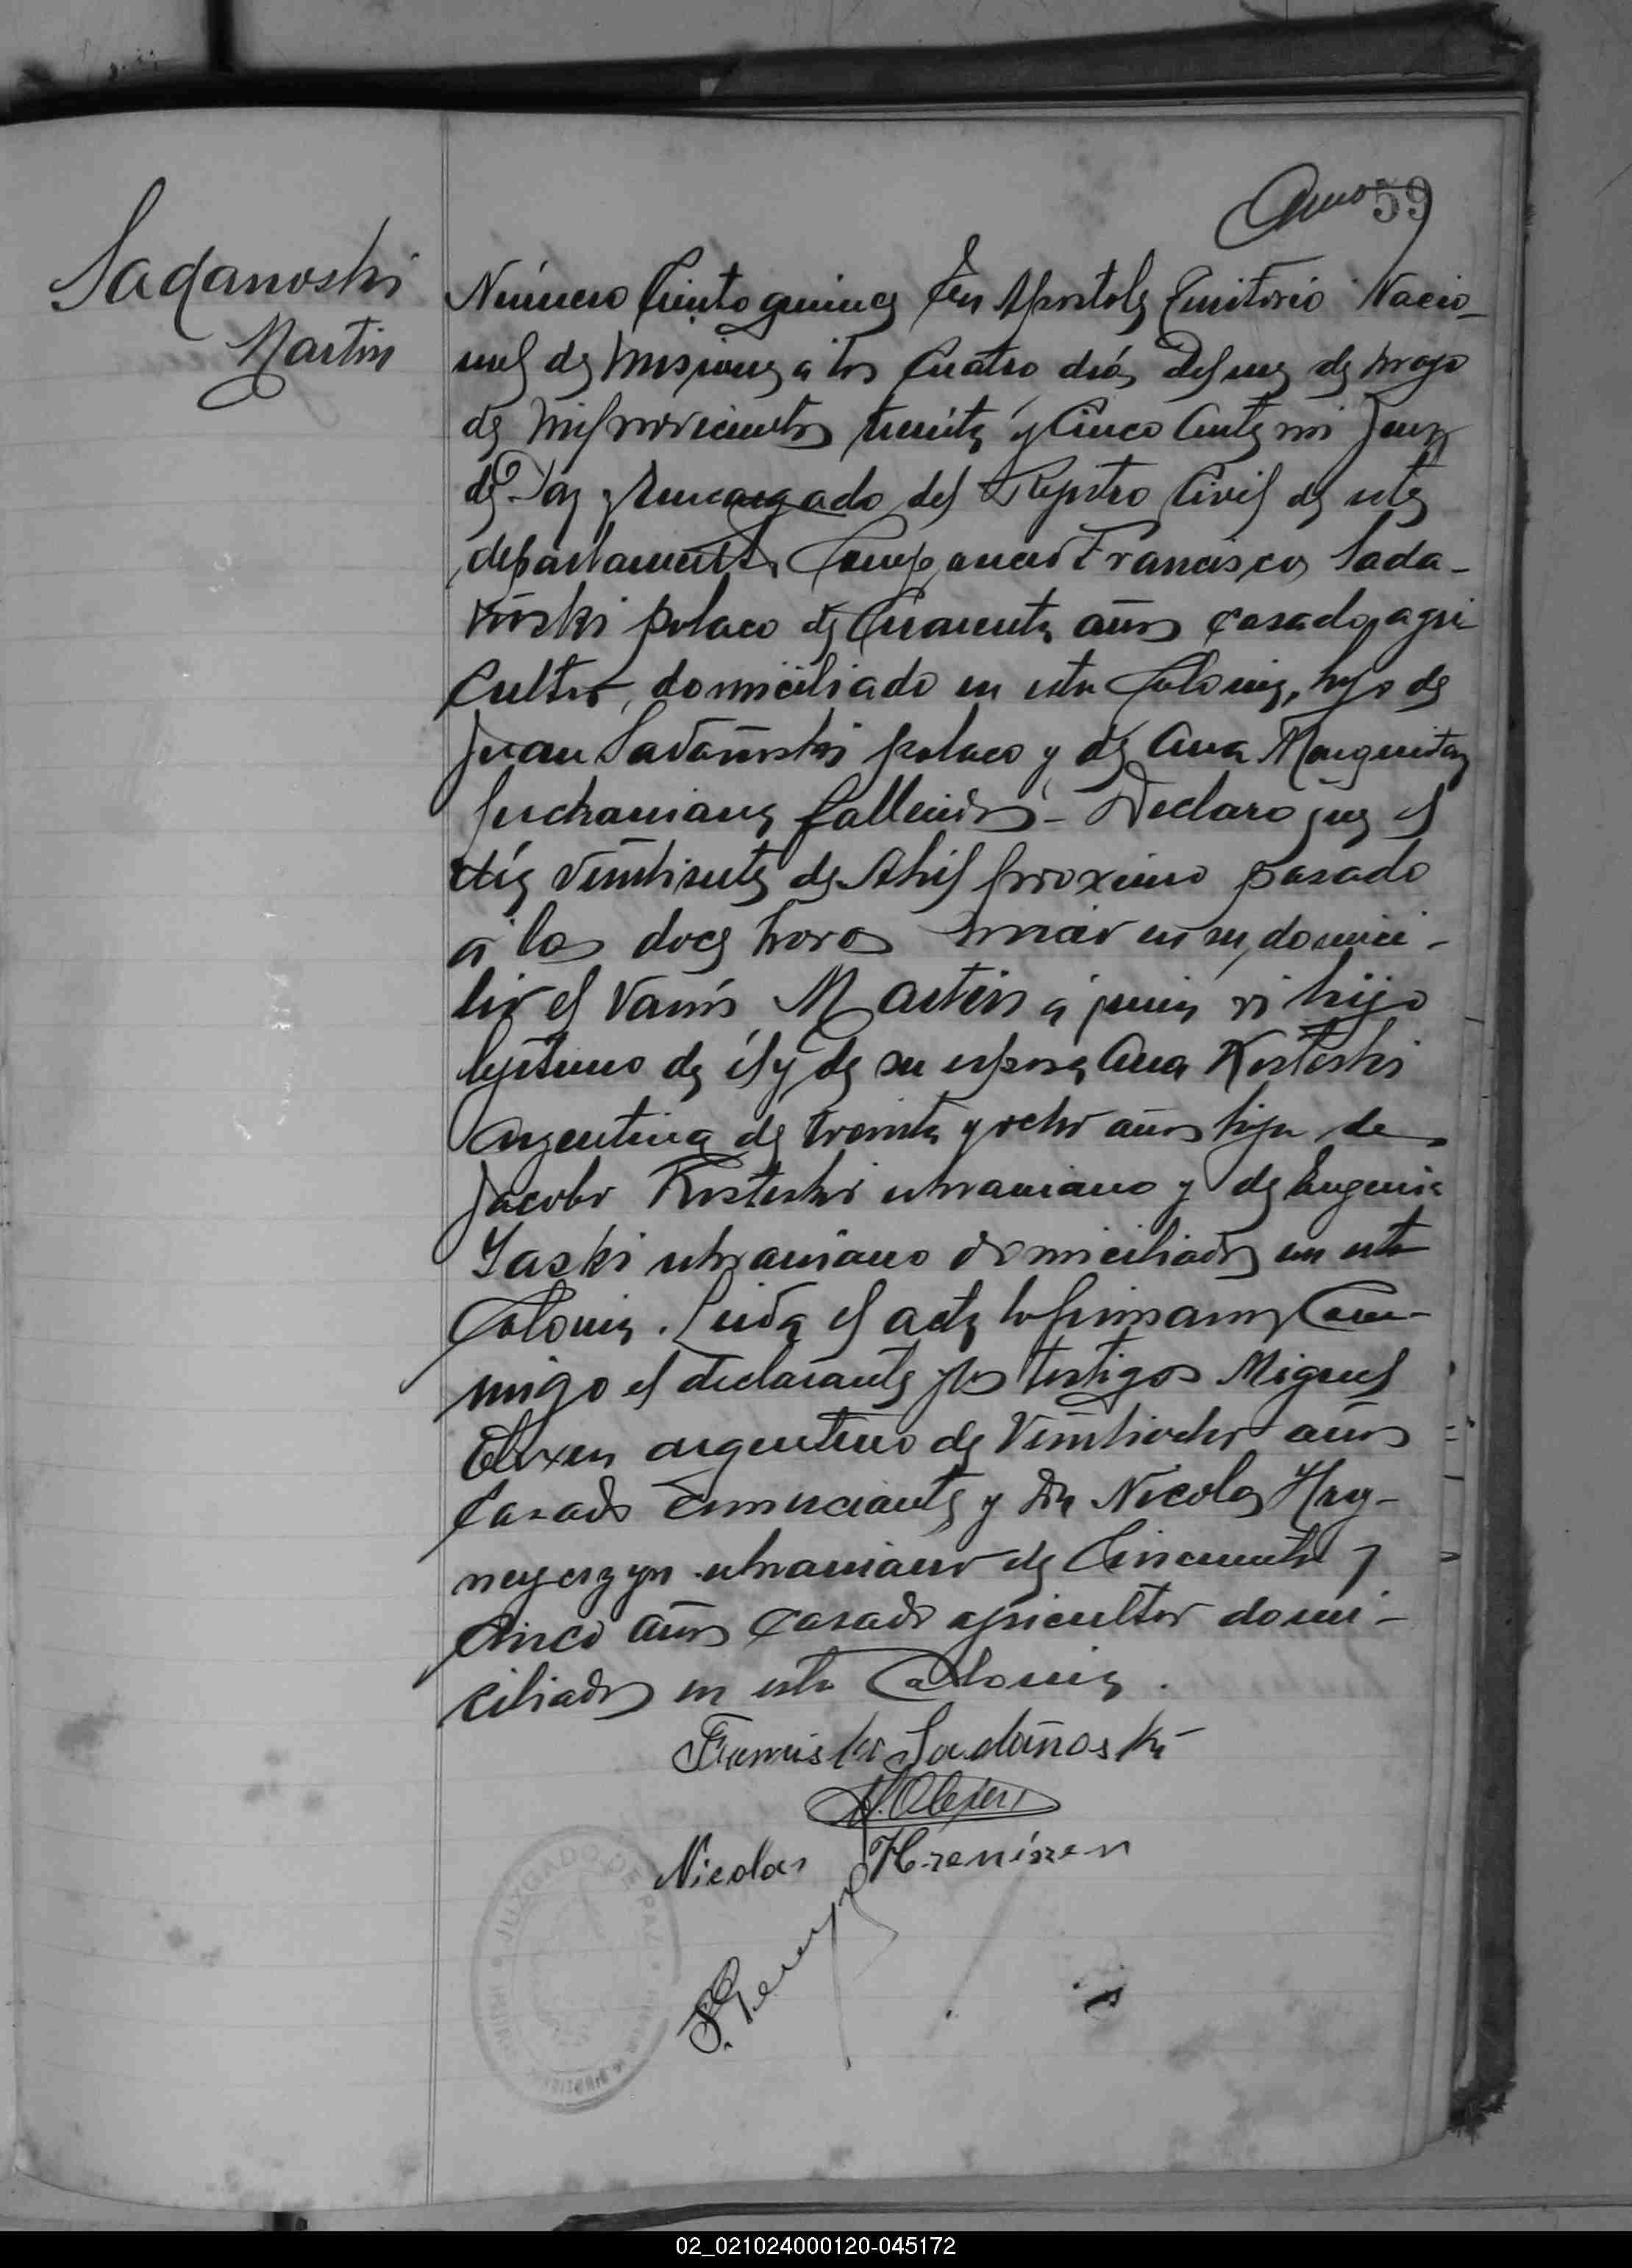 59
Sadanoski
Martin
Número Ciento quince En Apostoles Territorio Nacio-
nal de Misiones a los Cuatro días del mes de mayo
de mil novecientos treinta y Cinco Ante mi Juez
de Paz y Encargado del Registro Civil de este
departamento, Comparecio Francisco Sada-
noski polaco de Cuarenta años casado, agri-
cultor, domiciliado en esta Colonia, hijo de
Juan Sadanoski polaco y de Ana Margarita
fallecidos - Declaro que el
día veintisiete de Abril proximo pasado
a las doce horas nació en su domici-
lio el Varón Martin a quien vi hijo
lejitimo de él y de su esposa Ana Kosteski
Argentina de treinta y ocho años hija de
Jacobo Kosteski ukraniano y de Eugenia
Yaski ukraniano domiciliados en esta
Colonia. Leida el acta la firmaron Con-
migo el declarante y los testigos Miguel
argentino de Veintiocho años
Casado Comerciante y Don Nicolas Hry-
neyczyn ukraniano de Cincuenta y
cinco años Casado agricultor domi-
ciliados en esta Colonia.
Sadanoski
Nicolas
JUZGADO DE PAZ
02_021024000120-045172